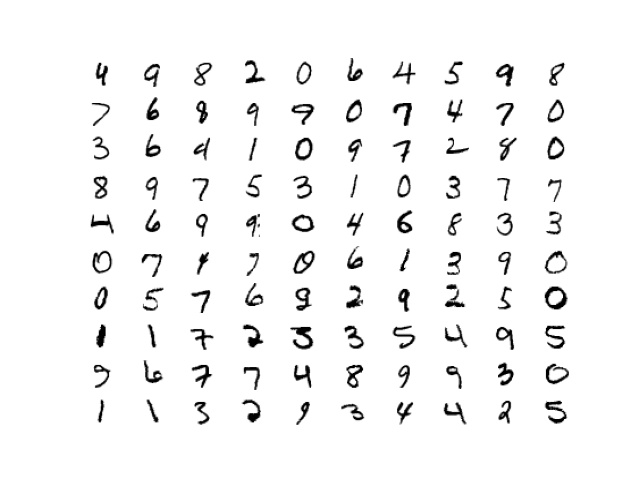 4 9 8 2 0 6 4 5 9 8
7 6 8 9 9 0 7 4 7 0
3 6 9 1 0 9 7 2 8 0
8 9 7 5 3 1 0 3 7 7
4 6 9 9 0 4 6 8 3 3
0 7 4 7 0 6 1 3 9 0
0 5 7 6 9 2 9 2 5 0
1 1 7 2 3 3 5 4 9 5
9 6 7 7 4 8 9 9 3 0
1 1 3 2 9 3 4 4 2 5